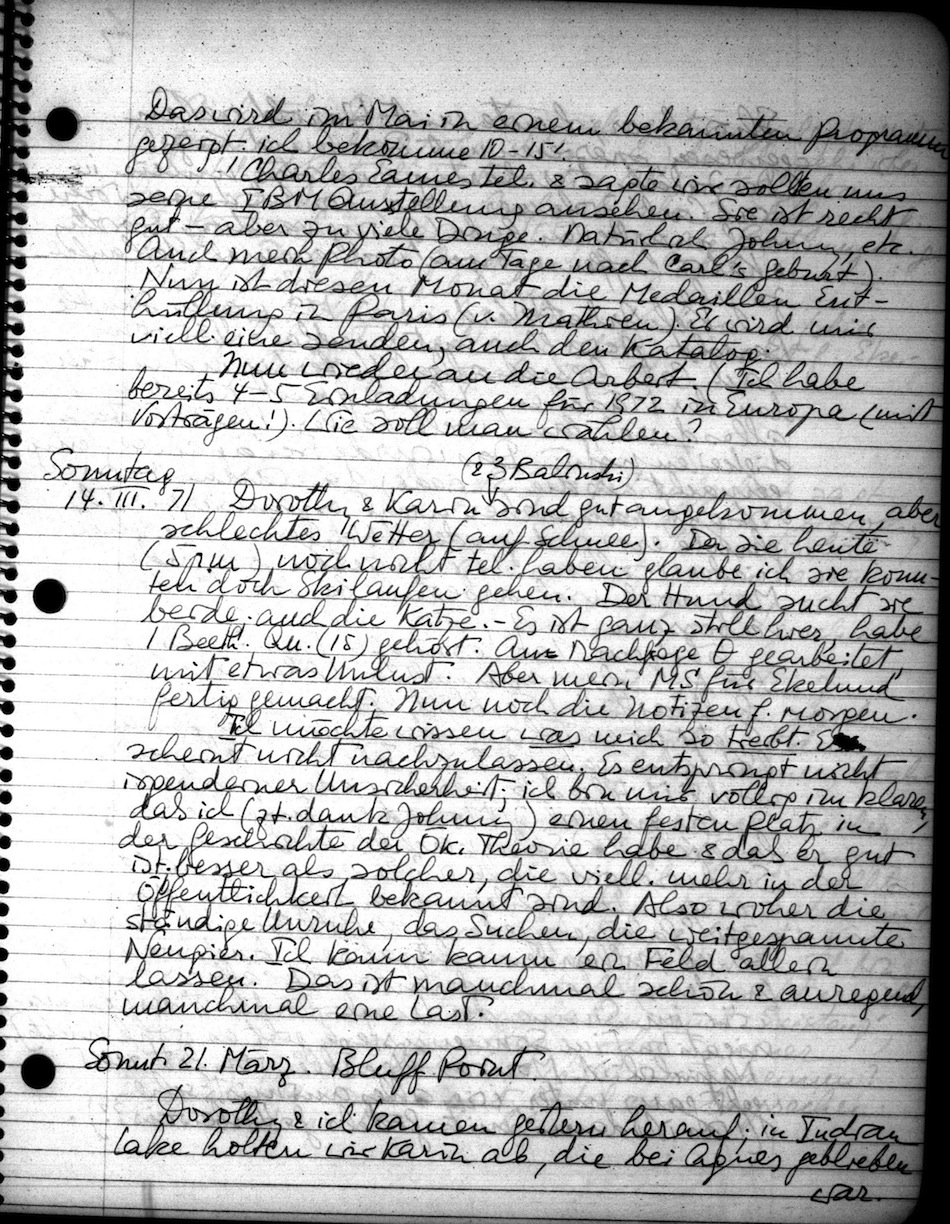 Das wird im Mai in einem bekannten Programm
gezeigt. ich bekomme 10-15'.
Charles Eames tel. & sagte wir sollen uns
seine IBM Ausstellung ansehen. Sie ist recht
gut – aber zu viele Dinge. Natürlich Johnny, etc.
Auch mein Photo (am Tage nach Carl's geburt).
Nun ist diesen Monat die Medaillen Ent-
hüllung in Paris (v. Mathieu). Er wird mir
viell. eine senden, auch den Katalog.
Nun wieder an die Arbeit. (Ich habe
bereits 4-5 Einladungen für 1972 in Europa (mit
Vorträgen!). Wie soll man wählen?
Sonntag (& 3 Balinski)
14. III. 71 Dorothy & Karin sind gut angekommen, aber
schlechtes Wetter (auf Schnee). Da sie heute
(5 pm) noch nicht tel. haben glaube ich sie konn-
ten doch Skilaufen gehen. Der Hund sucht sie
beide. auch die Katze. – Es ist ganz still hier, habe
1 Beeth. Qu. (15) gehört. An Nachfrage θ gearbeitet,
mit etwas Unlust. Aber mein MS für Ekelund
fertig gemacht. Nun noch die Notizen f. morgen.
Ich möchte wissen was mich so treibt. Es
scheint nicht nachzulassen. Es entspringt nicht
irgendeiner Unsicherheit; ich bin mir völlig im klaren,
das ich (zt. dank Johnny) einen festen Platz in
der Geschichte der Ök. Theorie habe & daß er gut
ist. besser als solcher, die viell. mehr in der
Öffentlichkeit bekannt sind. Also woher die
ständige Unruhe, das Suchen, die weitgespannte
Neugier. Ich kann kaum ein Feld allein
lassen. Das ist manchmal schön & anregend,
manchmal eine Last.
Sonnt. 21. März. Bluff Point.
Dorothy & ich kamen gestern herauf; in Indian
Lake holten wir Karin ab, die bei Agnes geblieben
war.